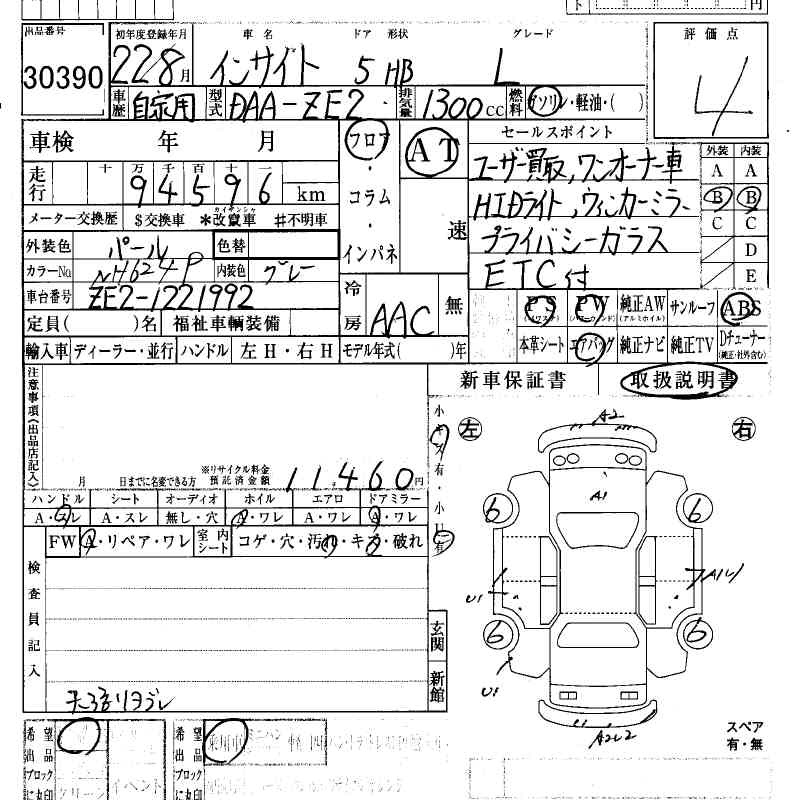 円
出品番号 初年度登録年月 車名 ドア 形状 グレード 評価点
30390 22 8月 インサイト 5 HB L 4
車歴 自家用 型式 DAA-ZE2 排気量 1300cc 燃料 ガソリン・軽油・( )
車検 年 月 フロア AT セールスポイント 外装 内装
走行 十 万 千 百 十 一 ・ ユーザー買取,ワンオーナー車 A A
94596 km コラム HIDライト,ウィンカーミラー B B
メーター交換歴 $交換車 *改竄車 #不明車 ・ 速 プライバシーガラス C C
外装色 パール 色替 インパネ ETC付 D
カラーNo NH624P 内装色 グレー E
車台番号 ZE2-1221992 冷房 AAC 無 PS PW 純正AW サンルーフ ABS
(パワステ) (パワーウインド) (アルミホイル)
定員( )名 福祉車輌装備 本革シート エアバッグ 純正ナビ 純正TV Dチューナー
(純正・社外含む)
輸入車 ディーラー・並行 ハンドル 左H・右H モデル年式( )年
注意事項(出品店記入) 新車保証書 取扱説明書
小キズ有・小凹有 左 右
A2
A1
月 日までに名変できる方 ※リサイクル料金預託済金額 11,460円
ハンドル シート オーディオ ホイル エアロ ドアミラー
A・スレ A・スレ 無し・穴 A・ワレ A・ワレ A・ワレ
6 6
FW A・リペア・ワレ 室内シート コゲ・穴・汚れ・キズ・破れ
検査員記入
U1
6 6
玄関
新館
U1
A2
スペア
有・無
希望出品ブロックに丸印 希望出品ブロックに丸印